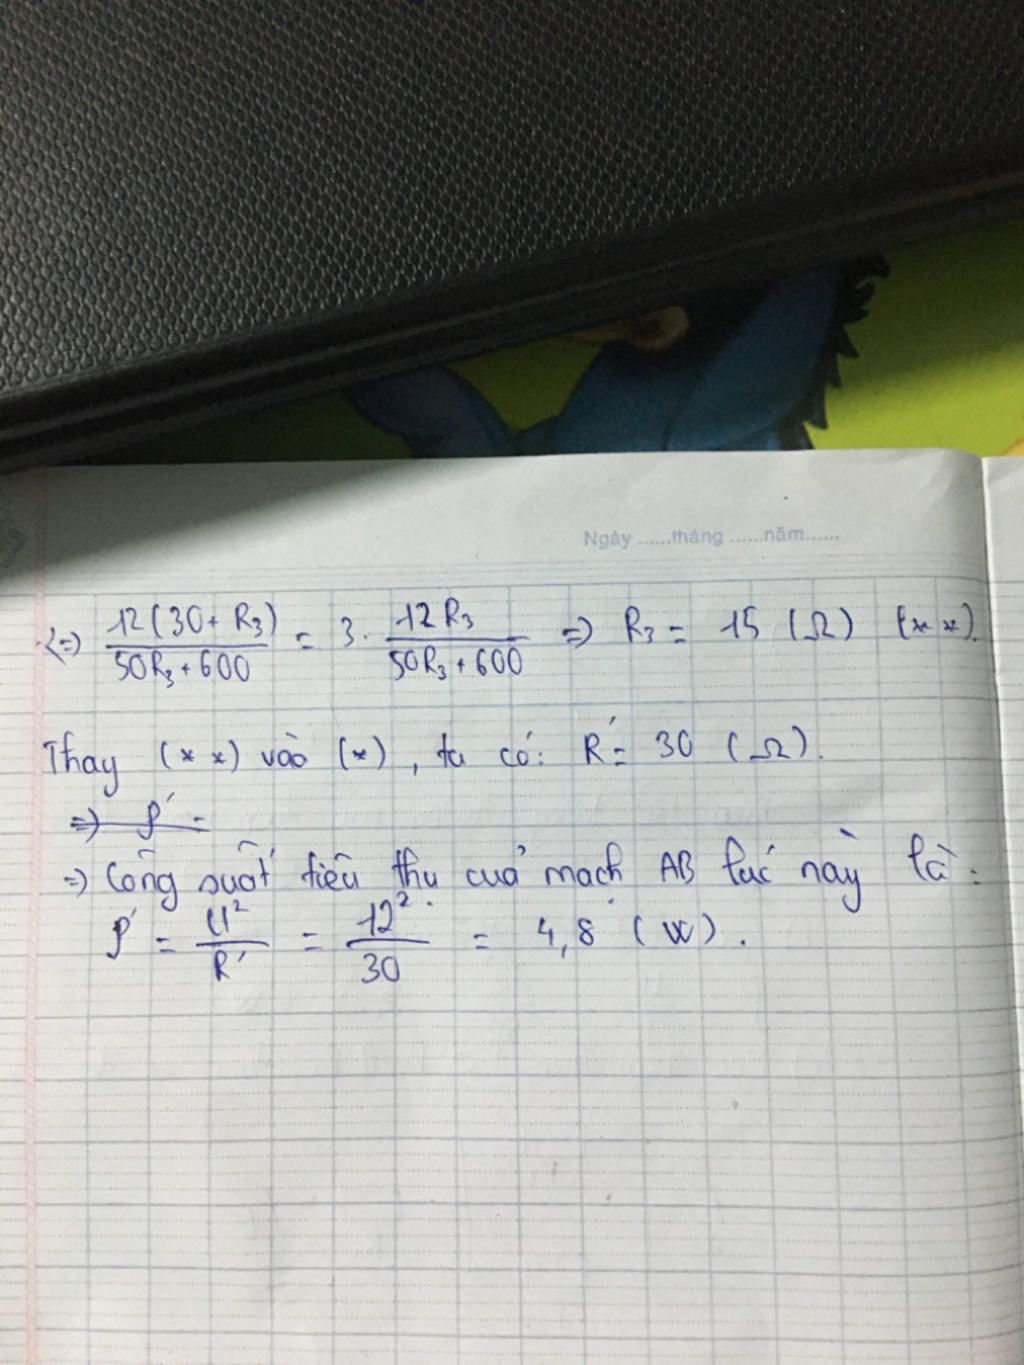 Ngày ......tháng ......năm......
<=> 12(30+R₃)/50R₃+600 = 3. 12R₃/50R₃+600 => R₃ = 15 (Ω) (**).
Thay (**) vào (*), ta có: R' = 30 (Ω).
=> P' =
=> Công suất tiêu thụ của mạch AB lúc này là:
P' = U²/R' = 12²/30 = 4,8 (W).